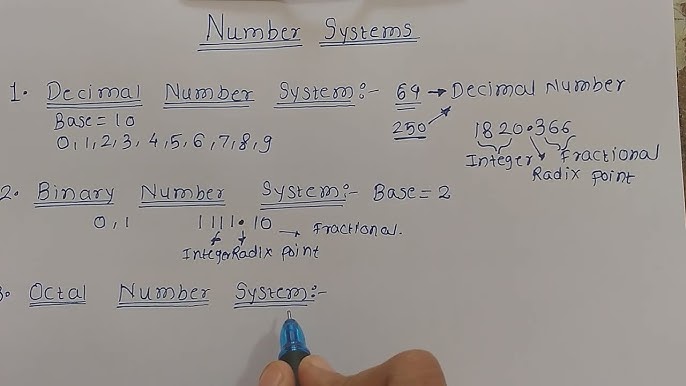 Number Systems
1. Decimal Number System:- 64 → Decimal Number
Base = 10
250
1820.366
0,1,2,3,4,5,6,7,8,9
Integer Fractional
Radix Point
2. Binary Number System:- Base = 2
0,1 1111.10 → Fractional.
Integer Radix point
3. Octal Number System:-